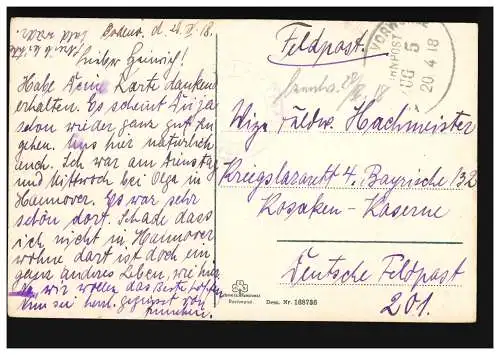 Bodenw. d. 20.IV.18.
Lieber Heinrich!
Habe Deine Karte dankend
erhalten. Es scheint Dir ja
schon wieder ganz gut zu
gehen. Uns hier natürlich
auch. Ich war am Dienstag
und Mittwoch bei Olga in
Hannover. Es war sehr
schön dort. Schade dass
ich nicht in Hannover
wohne dart ist doch ein
ganz anderes Leben, wie hier
wir wollen das Beste hoffen
sei herzl. gegrüsst von
Feldpost.
BAHNPOST
ZUG 5
20 4 18
Vize Feldw. Hachmeister
Kriegslazarett 4. Bayrische 132
Kosaken-Kaserne
Deutsche Feldpost
201.
Dortmund. Dess. Nr. 168756